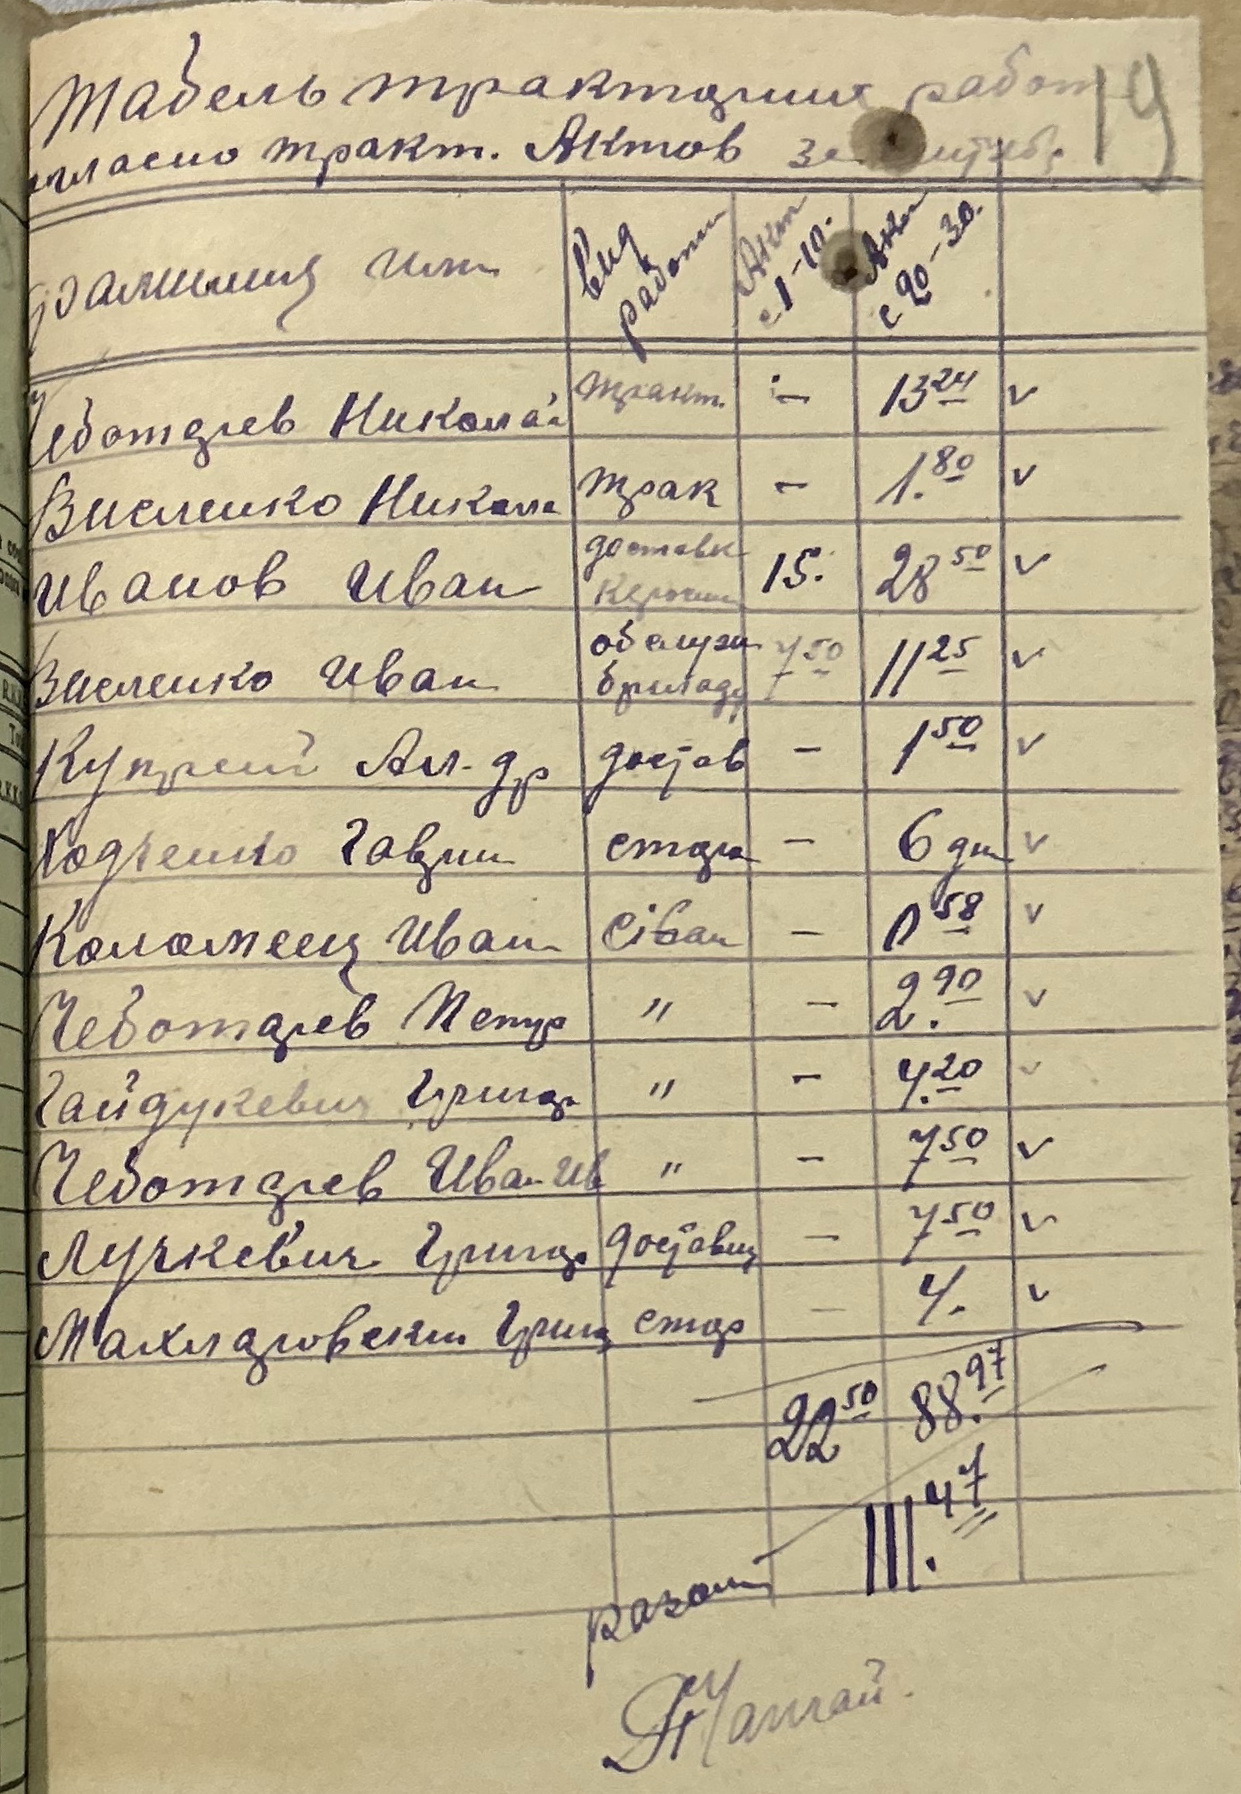 Табель тракторних работ 19
согласно тракт. Актов за
фамилия имя Вид работи Акт с 1-10. Акт с 20-30.
Чеботарев Николай тракт. - 13 24 v
Висленко Никола трак - 1. 80 v
Иванов Иван доставк керосин 15. 28 50 v
Висленко Иван обслужи бригаду 7 50 11 25 v
Куприй Ал-др достав - 1 50 v
Ходченко Гаври стор - 6 дн v
Коломеец Иван Сіван - 0 58 v
Чеботарев Петр " - 2. 90 v
Гайдукевич Григор " - 4. 20 v
Чеботарев Иван Ив " - 7 50 v
Лучкевич Григор доставщ - 7 50 v
Махляровски Григ стор - 4. v
22 50 88. 97
111. 47
разом